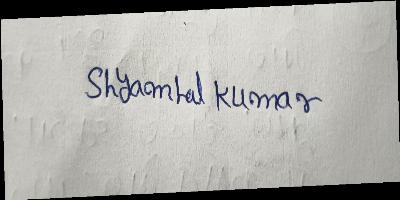 Shyamlal Kumar